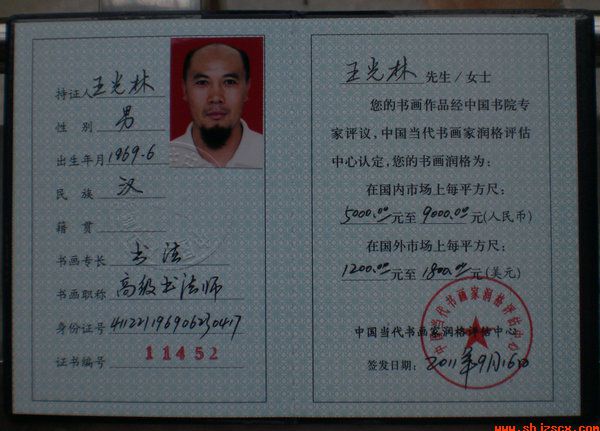 持证人 王光林
性 别 男
出生年月 1969-6
民 族 汉
籍 贯
书画专长 书法
书画职称 高级书法师
身份证号 411221196906230417
证书编号 11452
王光林 先生/女士
您的书画作品经中国书院专
家评议，中国当代书画家润格评估
中心认定，您的书画润格为：
在国内市场上每平方尺：
5000.00元至 9000.00元(人民币)
在国外市场上每平方尺：
1200.00元至 1800.00元(美元)
中国当代书画家润格评估中心
签发日期： 2011年9月16日
中国当代书画家润格评估中心
www.shjzscx.com